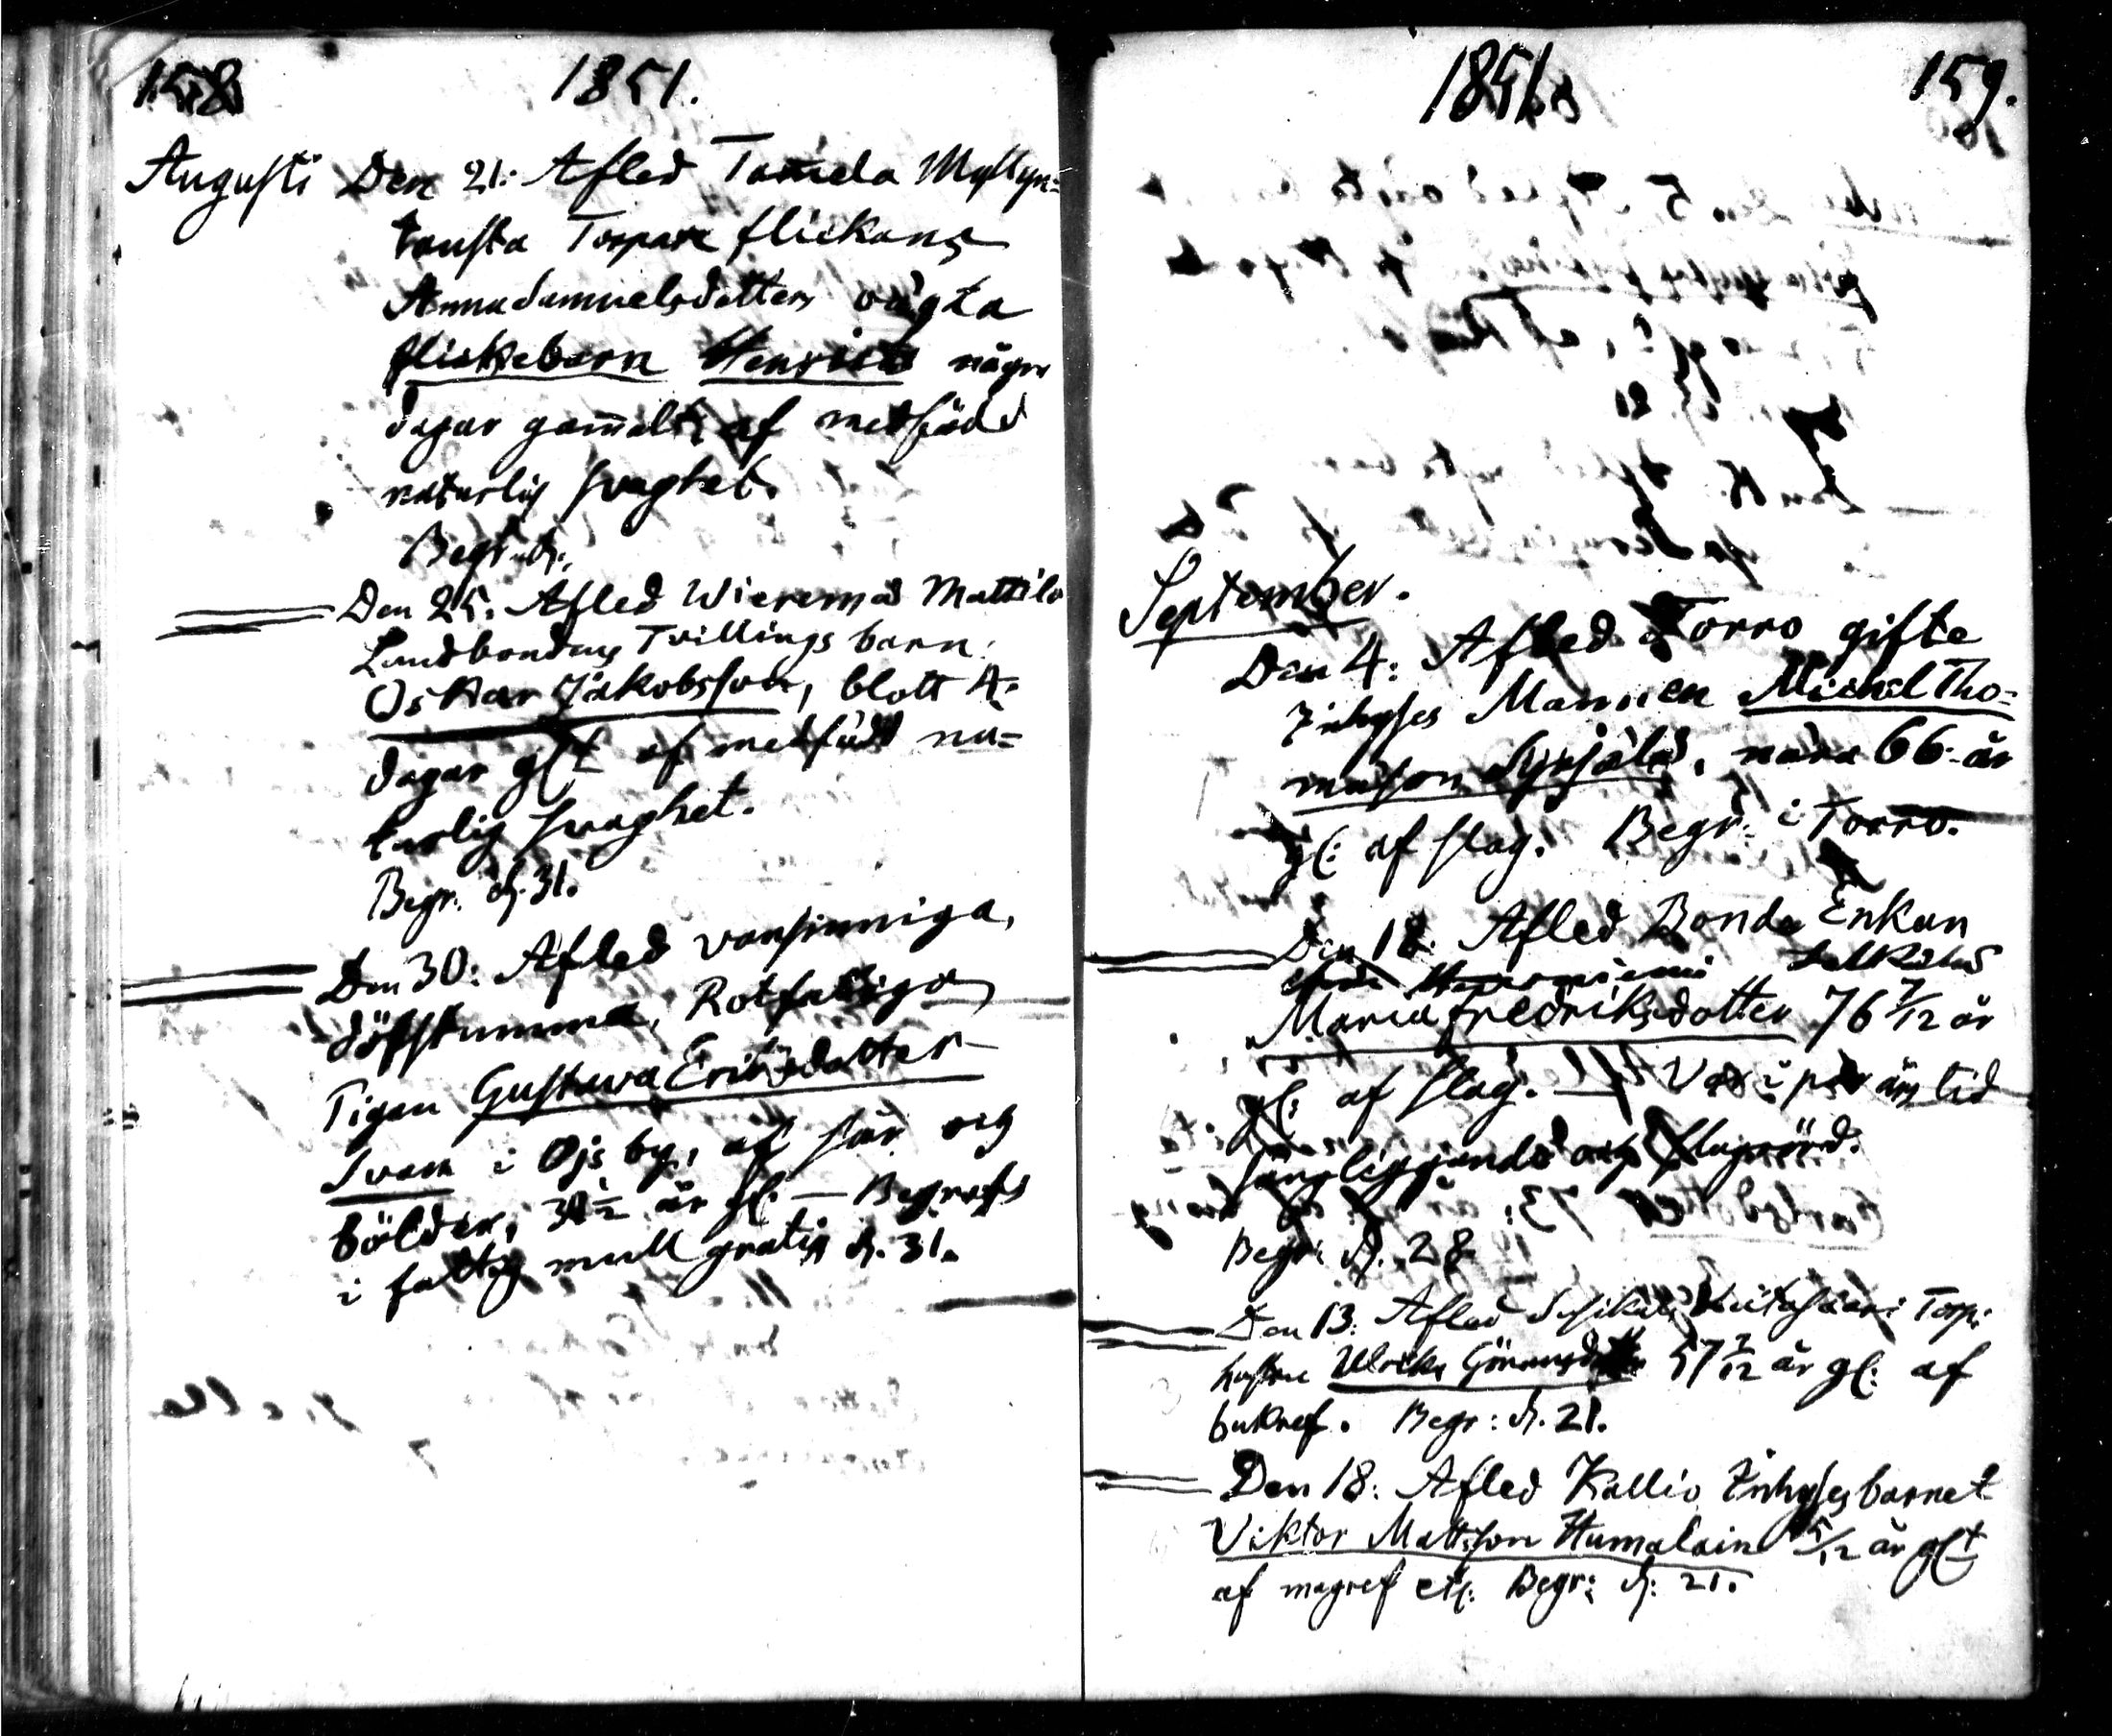 158
1851.
Augusti Den 21: Afled Tamela Myllyn-
tausta Torpare flickans
Anna Samuelsdotters oägta
flickebarn Henrica några
dagar gam̄alt, af medfödd
naturlig svaghet.
Begr: d:
Den 25. Afled Wieremas Mattila
Landbondens Tvillings barn:
Oskar Jakobsson, blott 4.
dagar glt af medfödd na-
turlig svaghet.
Begr. d. 31.
Den 30: Afled vansinniga,
döfstumma, Rotfattiga
Pigan Gustava Eriksdotter
Svan i Öjs by, af sår och
bölder, 34½ år gl. — Begrofs
i fattig mull gratis d. 31.
1851.
159.
September.
Den 4: Afled Torro gifte
Inhyses Mannen Michel Tho-
masson, nära 66. år
gl: af slag. Begr: i Torro.
Den 18: Afled Bonde Enkan
Maria Fredriksdotter 76 7/12 år
gl: af slag. — Var i par års tid
sängliggande och slagrörd.
Begr: d. 28
Den 13: Afled Torp:
hustru Ulrika Göransdotter 57 7/12 år gl: af
bukref. Begr: d. 21.
Den 18: Afled Kallio Inhyses barnet
Viktor Mattsson Humalain 5/12 år glt
af magref etc: Begr: d: 21.